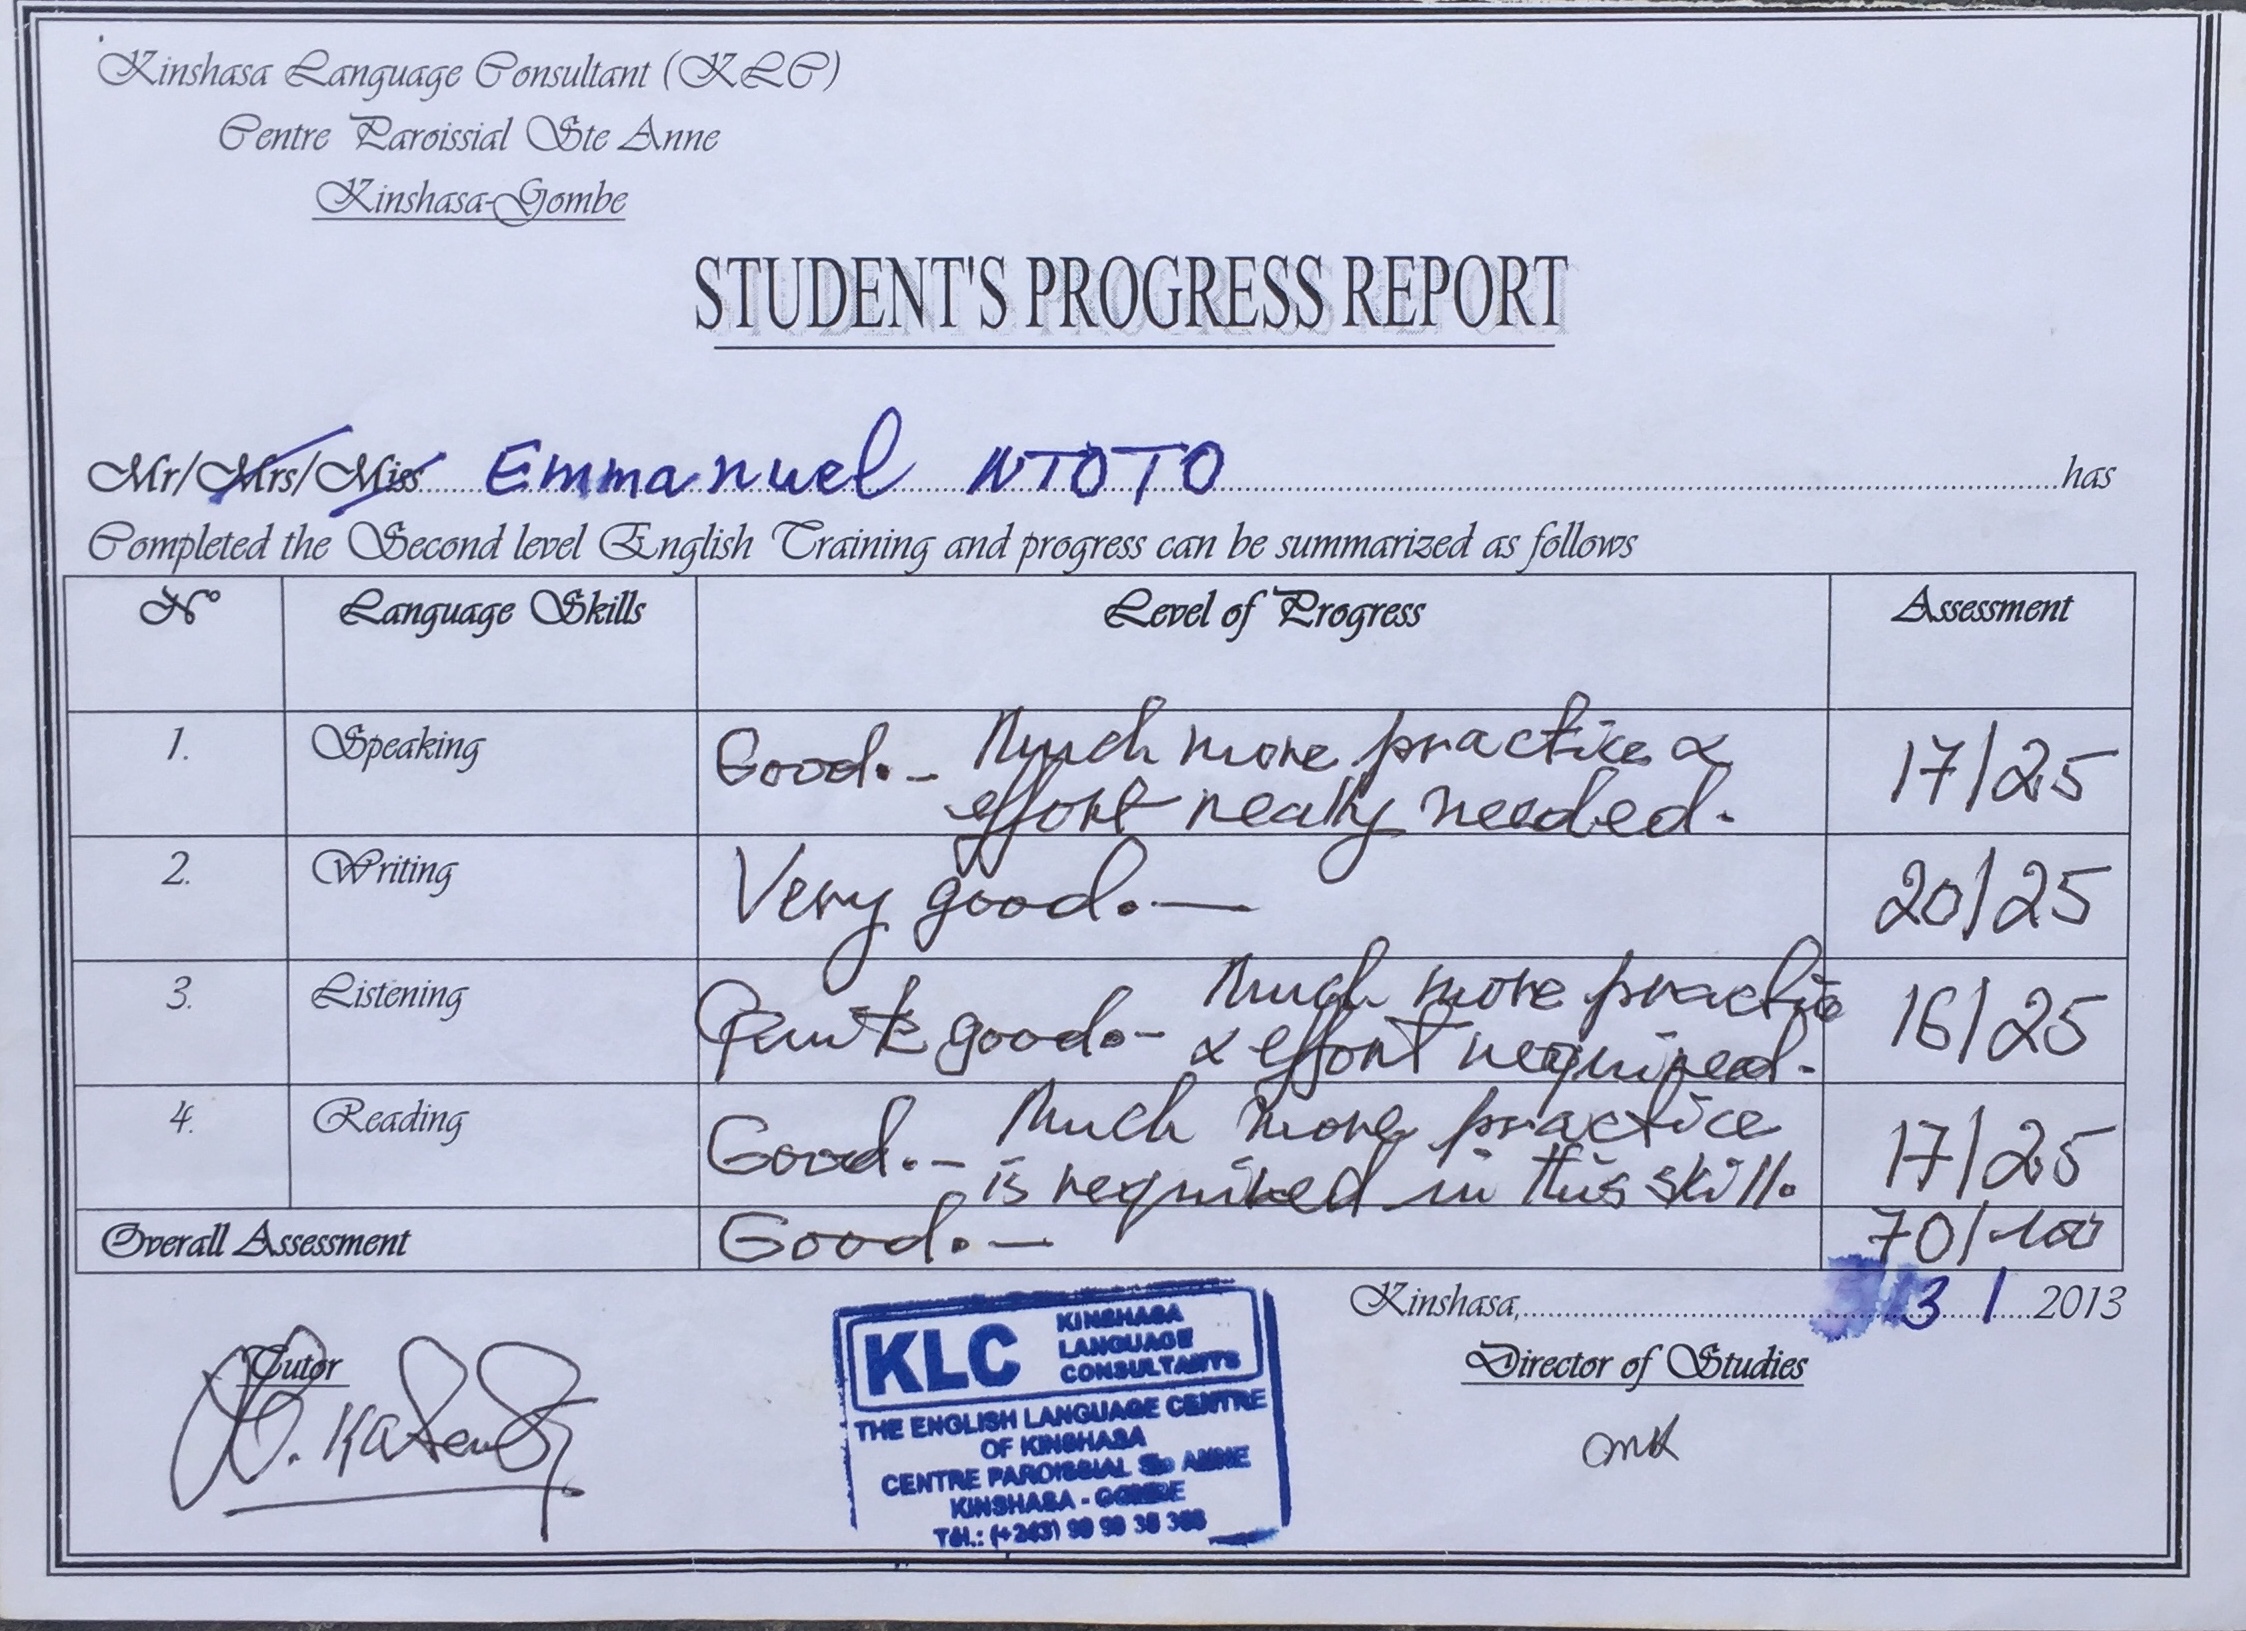 Kinshasa Language Consultant (KLC)
Centre Paroissial Ste Anne
Kinshasa-Gombe
STUDENT'S PROGRESS REPORT
Mr/Mrs/Miss Emmanuel NTOTO has
Completed the Second level English Training and progress can be summarized as follows
N° Language Skills Level of Progress Assessment
1. Speaking Good.- Much more practice & effort really needed. 17/25
2. Writing Very good.— 20/25
3. Listening Quite good.- Much more practice & effort required. 16/25
4. Reading Good.- Much more practice is required in this skill. 17/25
Overall Assessment Good.— 70/100
Kinshasa, 3 / 2013
Tutor
Director of Studies
KLC KINSHASA
LANGUAGE
CONSULTANTS
THE ENGLISH LANGUAGE CENTRE
OF KINSHASA
CENTRE PAROISSIAL Ste ANNE
KINSHASA - GOMBE
Tél.: (+243) 99 99 35